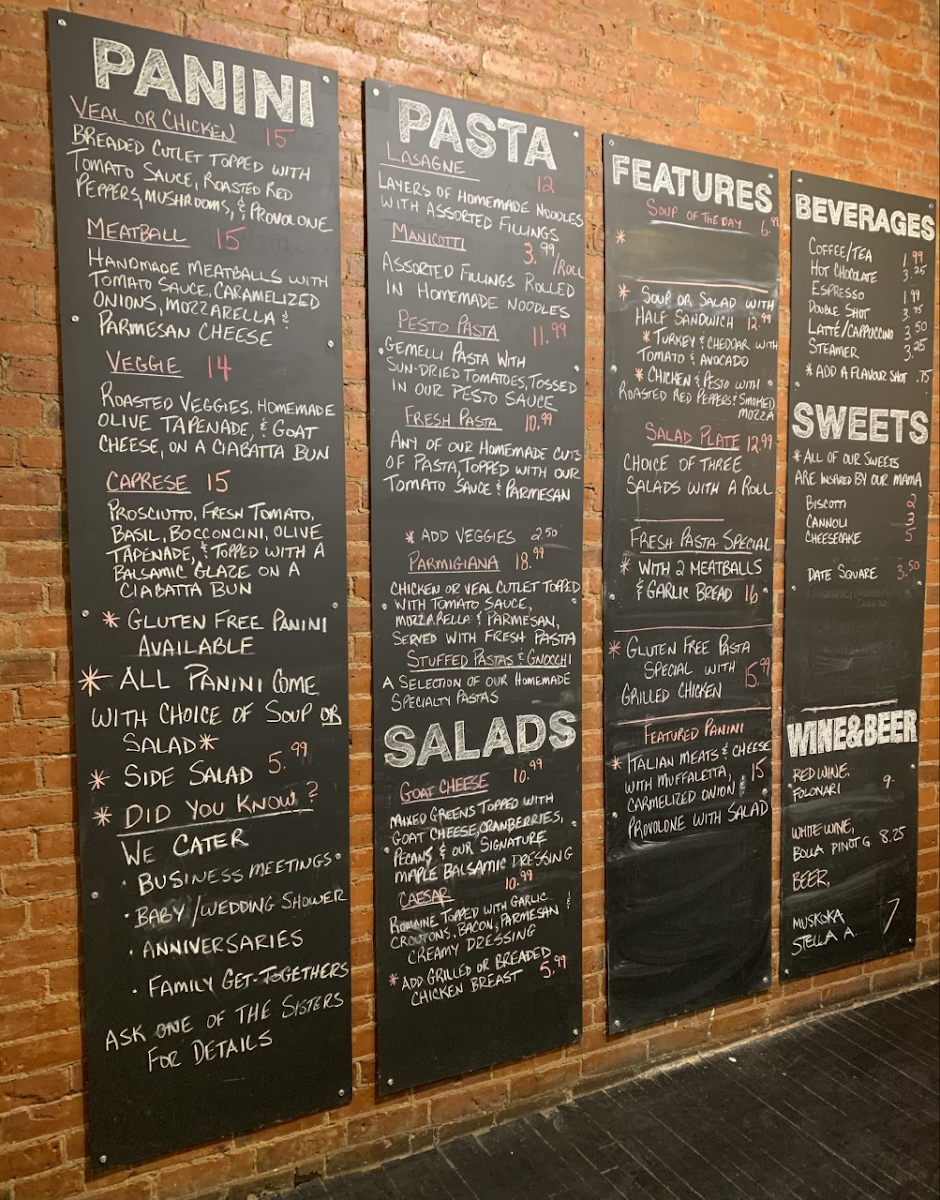 PANINI
VEAL OR CHICKEN 15
BREADED CUTLET TOPPED WITH
TOMATO SAUCE, ROASTED RED
PEPPERS, MUSHROOMS, & PROVOLONE
MEATBALL 15
HANDMADE MEATBALLS WITH
TOMATO SAUCE, CARAMELIZED
ONIONS, MOZZARELLA &
PARMESAN CHEESE
VEGGIE 14
ROASTED VEGGIES, HOMEMADE
OLIVE TAPENADE, & GOAT
CHEESE, ON A CIABATTA BUN
CAPRESE 15
PROSCIUTTO, FRESH TOMATO,
BASIL, BOCCONCINI, OLIVE
TAPENADE, & TOPPED WITH A
BALSAMIC GLAZE ON A
CIABATTA BUN
* GLUTEN FREE PANINI
AVAILABLE
* ALL PANINI COME
WITH CHOICE OF SOUP OR
SALAD *
* SIDE SALAD 5.99
* DID YOU KNOW?
WE CATER
· BUSINESS MEETINGS
· BABY/WEDDING SHOWER
· ANNIVERSARIES
· FAMILY GET-TOGETHERS
ASK ONE OF THE SISTERS
FOR DETAILS
PASTA
LASAGNE 12
LAYERS OF HOMEMADE NOODLES
WITH ASSORTED FILLINGS
MANICOTTI 3.99/ROLL
ASSORTED FILLINGS ROLLED
IN HOMEMADE NOODLES
PESTO PASTA 11.99
GEMELLI PASTA WITH
SUN-DRIED TOMATOES, TOSSED
IN OUR PESTO SAUCE
FRESH PASTA 10.99
ANY OF OUR HOMEMADE CUTS
OF PASTA, TOPPED WITH OUR
TOMATO SAUCE & PARMESAN
* ADD VEGGIES 2.50
PARMIGIANA 18.99
CHICKEN OR VEAL CUTLET TOPPED
WITH TOMATO SAUCE,
MOZZARELLA & PARMESAN,
SERVED WITH FRESH PASTA
STUFFED PASTAS & GNOCCHI
A SELECTION OF OUR HOMEMADE
SPECIALTY PASTAS
SALADS
GOAT CHEESE 10.99
MIXED GREENS TOPPED WITH
GOAT CHEESE, CRANBERRIES,
PECANS & OUR SIGNATURE
MAPLE BALSAMIC DRESSING
CAESAR 10.99
ROMAINE TOPPED WITH GARLIC
CROUTONS, BACON, PARMESAN &
CREAMY DRESSING
* ADD GRILLED OR BREADED
CHICKEN BREAST 5.99
FEATURES
SOUP OF THE DAY 6.99
*
* SOUP OR SALAD WITH
HALF SANDWICH 12.99
* TURKEY & CHEDDAR WITH
TOMATO & AVOCADO
* CHICKEN & PESTO WITH
ROASTED RED PEPPERS & SMOKED
MOZZA
SALAD PLATE 12.99
CHOICE OF THREE
SALADS WITH A ROLL
FRESH PASTA SPECIAL
* WITH 2 MEATBALLS
& GARLIC BREAD 16
* GLUTEN FREE PASTA
SPECIAL WITH 15.99
GRILLED CHICKEN
FEATURED PANINI
* ITALIAN MEATS & CHEESE
WITH MUFFALETTA, 15
CARMELIZED ONION &
PROVOLONE WITH SALAD
BEVERAGES
COFFEE/TEA 1.99
HOT CHOCOLATE 3.25
ESPRESSO 1.99
DOUBLE SHOT 3.75
LATTÉ/CAPPUCCINO 3.50
STEAMER 3.25
* ADD A FLAVOUR SHOT .75
SWEETS
* ALL OF OUR SWEETS
ARE INSPIRED BY OUR MAMA
BISCOTTI 2
CANNOLI 3
CHEESECAKE 5
DATE SQUARE 3.50
WINE&BEER
RED WINE,
FOLONARI 9-
WHITE WINE,
BOLLA PINOT G 8.25
BEER,
MUSKOKA 7
STELLA A.